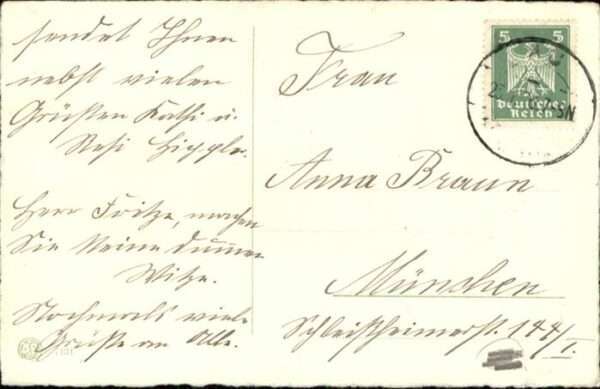 sendet Ihnen
nebst vielen
Grüßen Kathi u.
Resi
Herr Fritze, machen
Sie keine dummen
Witze.
Nochmals viele
Grüße an Alle.
Frau
Anna Braun
München
Schleißheimerst. 144/I.
5 5
Deutsches
Reich